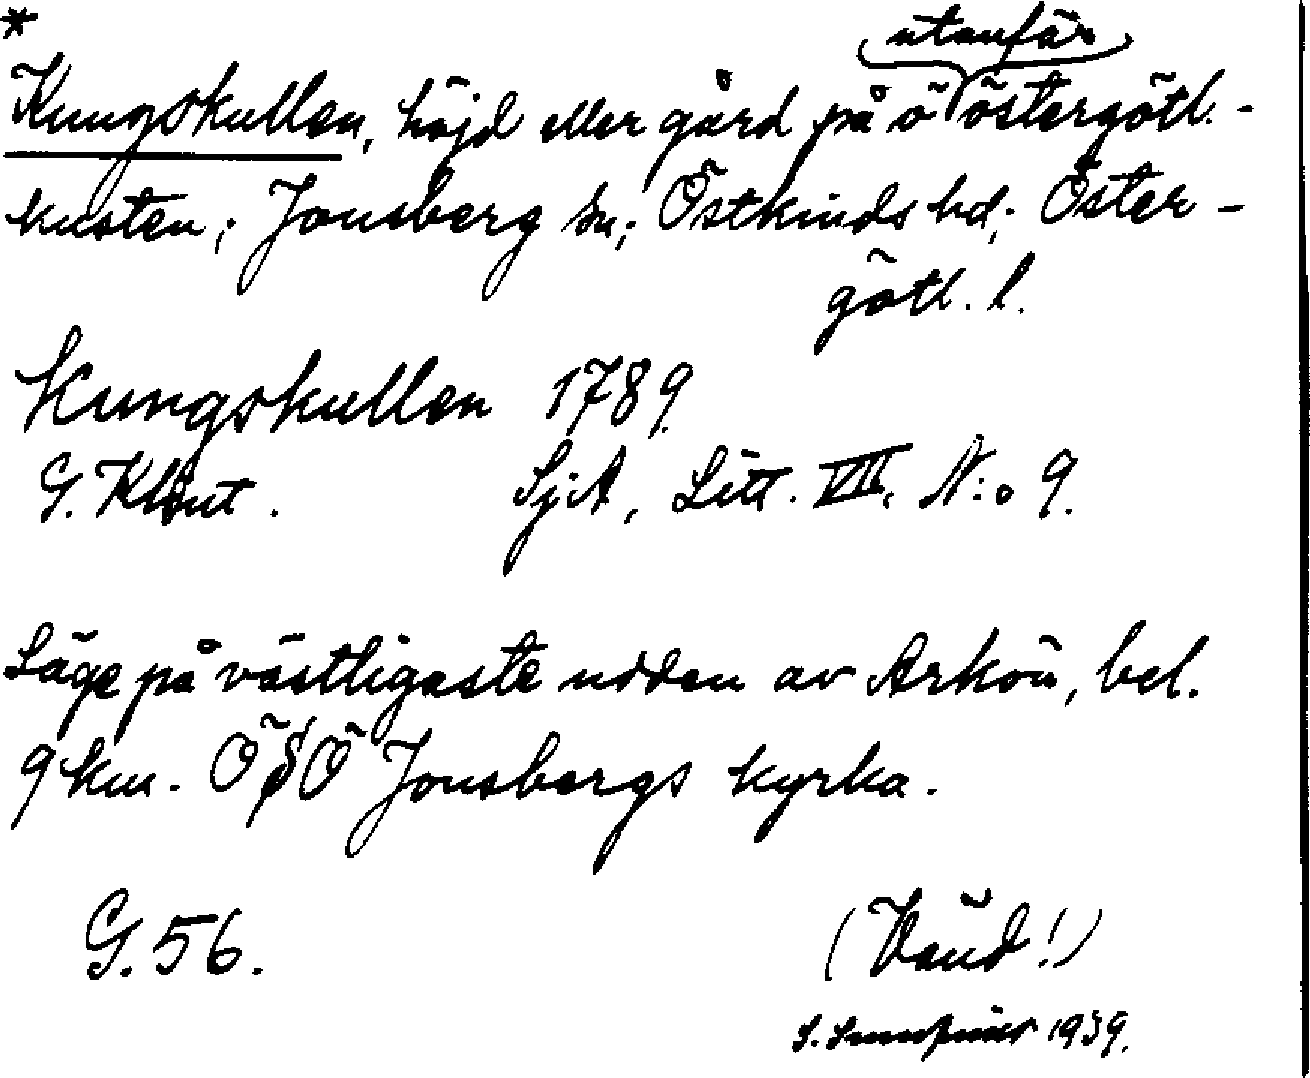 *
utanför
Kungskullen, höjd eller gård på ö östergötl.-
kusten; Jonsberg sn; Östkinds hd; Öster-
götl. l.
Kungskullen 1789
G. Klint. SjA, Litt. VIII, N:o 9.
Läge på västligaste udden av Arkön, bel.
9 km. ÖSÖ Jonsbergs kyrka.
G. 56.
(Vänd!)
1939.